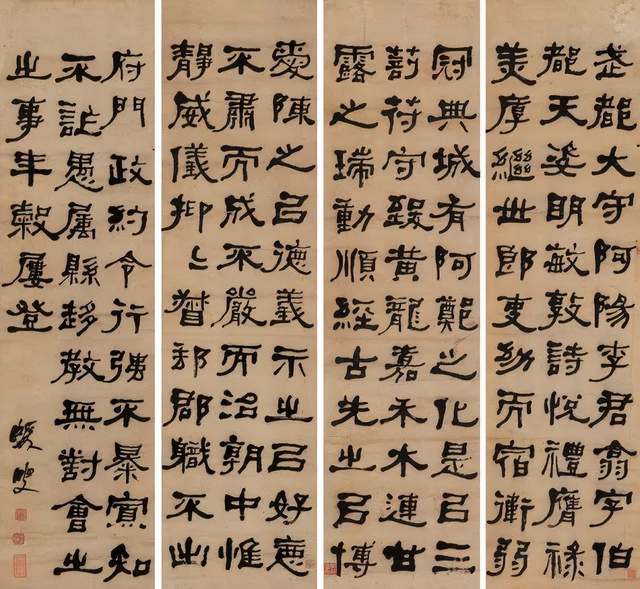 武都大守阿陽李君翕字伯
都天姿明敏敦詩悅禮膺祿
美厚繼世郎吏幼而宿衛弱
冠典城有阿鄭之化是以三
剖符守致黃龍嘉禾木連甘
露之瑞動順經古先之以博
愛陳之以德義示之以好惡
不肅而成不嚴而治朝中惟
靜威儀抑〻督郵郡職不出
府門政約令行強不暴寡知
不詐愚屬縣趍教無對會之
之事年穀屢登
蝯叟